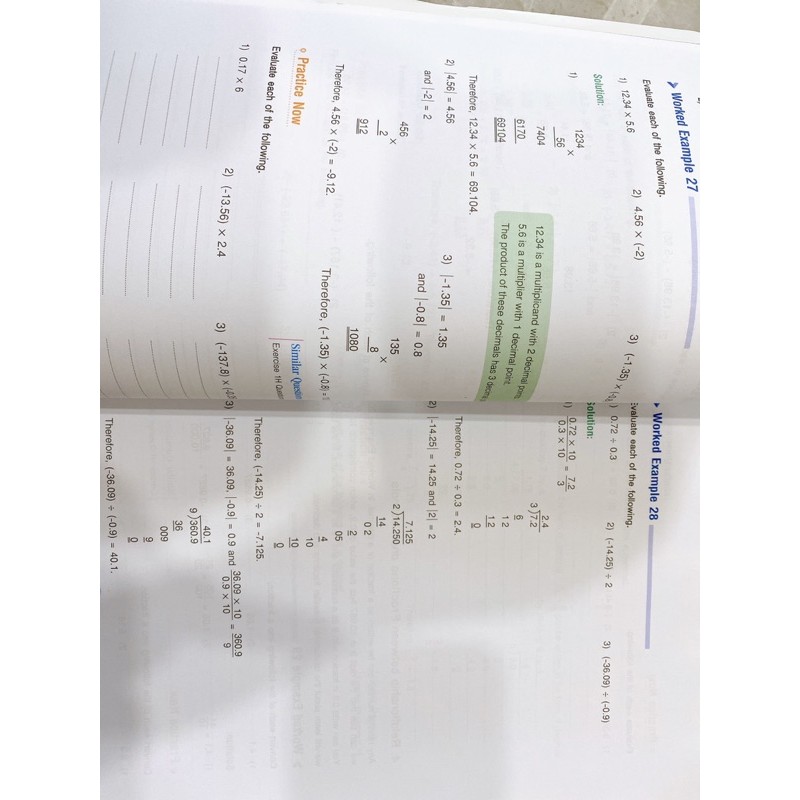 Worked Example 27
Evaluate each of the following.
1) 12.34 × 5.6
2) 4.56 × (-2)
3) (-1.35) ×
Solution:
1)
1234 ×
56
7404
6170
69104
12.34 is a multiplicand with 2 decimal
5.6 is a multiplier with 1 decimal point.
The product of these decimals has 3
Therefore, 12.34 × 5.6 = 69.104.
2) |4.56| = 4.56
and |-2| = 2
456 ×
2
912
Therefore, 4.56 × (-2) = -9.12.
3) |-1.35| = 1.35
and |-0.8| = 0.8
135 ×
8
1080
Therefore, (-1.35) × (-0.8) =
Practice Now
Similar
Exercise 1H
Evaluate each of the following.
1) 0.17 × 6
2) (-13.56) × 2.4
3) (-137.8) ×
Worked Example 28
Evaluate each of the following.
) 0.72 ÷ 0.3
2) (-14.25) ÷ 2
3) (-36.09) ÷ (-0.9)
Solution:
1) 0.72 × 10 / 0.3 × 10 = 7.2 / 3
2.4
3)7.2
6
1 2
1 2
0
Therefore, 0.72 ÷ 0.3 = 2.4.
2) |-14.25| = 14.25 and |2| = 2
7.125
2)14.250
14
0 2
2
05
4
10
10
0
Therefore, (-14.25) ÷ 2 = -7.125.
3) |-36.09| = 36.09, |-0.9| = 0.9 and 36.09 × 10 / 0.9 × 10 = 360.9 / 9
40.1
9)360.9
36
009
9
0
Therefore, (-36.09) ÷ (-0.9) = 40.1.